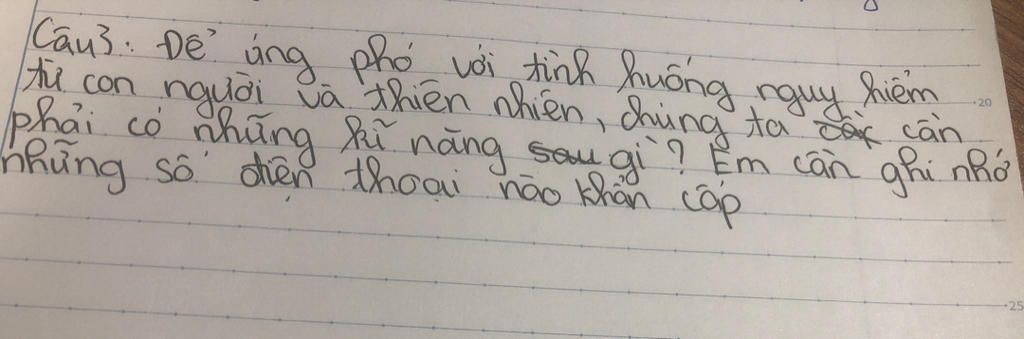 Câu3: Để ứng phó với tình huống nguy hiểm
từ con người và thiên nhiên, chúng ta cần
phải có những kĩ năng sau gì? Em cần ghi nhớ
những số điện thoại nào khẩn cấp
20
25